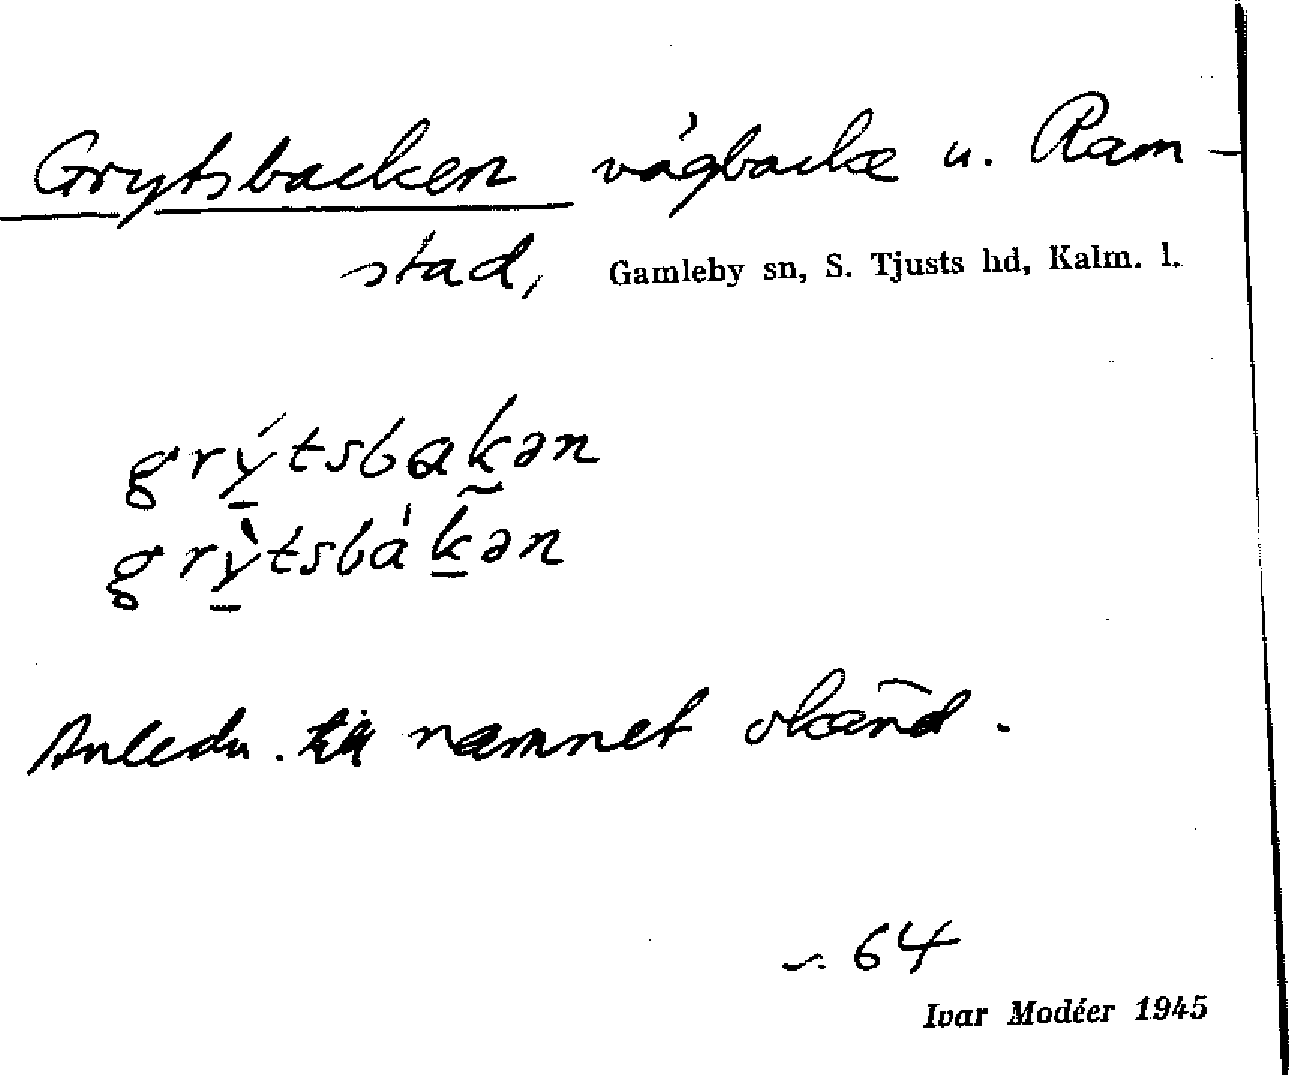 Grytsbacken vägbacke u. Ram-
stad, Gamleby sn, S. Tjusts hd, Kalm. l.
grý̱tsbak̰ən
grỳ̱tsbáḵən
Anledn. till namnet okänd.
64
Ivar Modéer 1945